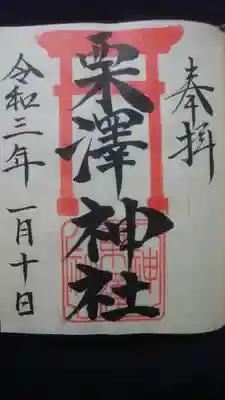 奉拝
栗澤神社
令和三年 一月十日